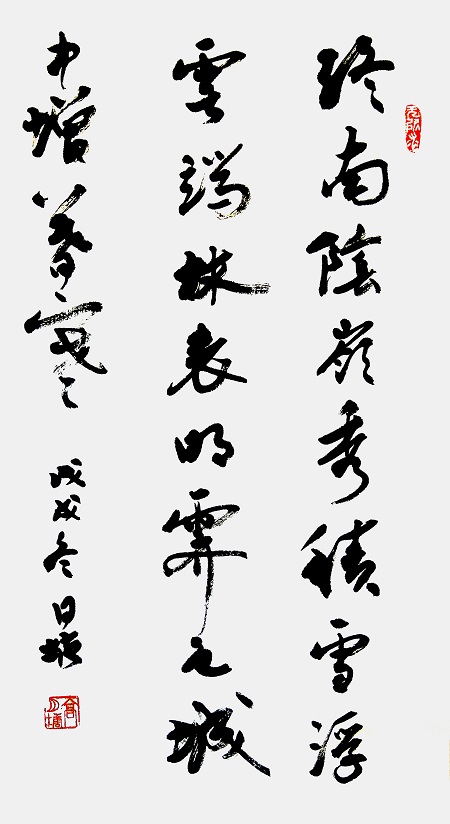 終南陰嶺秀積雪浮
雲端林表明霽色城
中增暮寒 戊戌冬